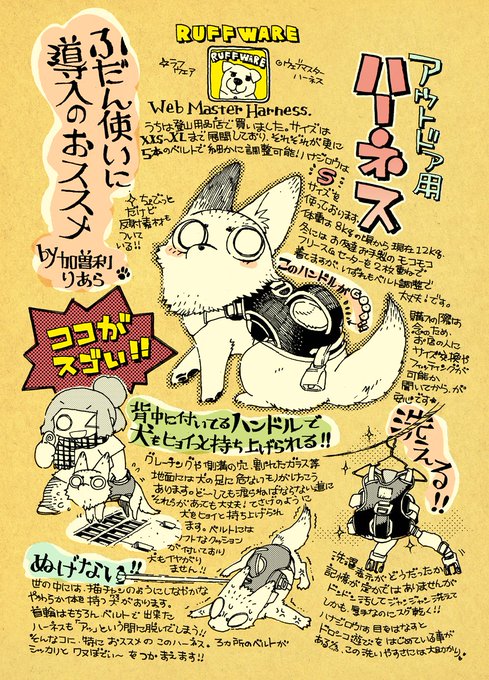 RUFFWARE
RUFFWARE
☆ラフ
ウェア
◎ウェブマスター
ハーネス
Web Master Harness.
アウトドア用
ハーネス
ふだん使いに
導入のおススメ
by加曽利
りあら
うちは登山用品店で買いました。サイズは
XXS~XLまで展開しており、それぞれが更に
5本のベルトで細かに調整可能!ハナジロウは
Sサイズを
使っております。
体重は8kgの頃から現在12kg。
冬にはお友達お手製のモコモコ
フリースとセーターを2枚重ねで
着てますが、いずれもベルト調整で
大丈夫!です。
購入の際は
念のため、
お店の人に
サイズ交換や
フィッティングが
可能か
聞いてから、が
安心です
☆ちょこっと
だけど
反射素材も
ついて
いる!!
このハンドルが
ココが
スゴい!!
背中に付いてるハンドルで
犬をヒョイっと持ち上げられる!!
グレーチングや側溝の穴、割れたガラス等
地面には犬の足に危ないモノがけっこう
あります。どーしても渡らねばならない道に
それらがあっても大丈夫!てさげのように
犬をヒョイと持ち上げられ
ます。ベルトには
ソフトなクッション
が付いており
犬もイヤがり
ません!!
洗える!!
洗濯表示がどうだったか
記憶が定かではありませんが
ドンドン汚してジャンジャン洗えて
しかも、夏季なのにスグ乾く!!
ハナジロウは目をはなすと
ドロンコ遊びをはじめている事が
ある為、この洗いやすさには大助かり
ぬけない!!
世の中には、子猫チャンのようにしなやかな
やわらか体を持つ子がおります。
首輪はもちろん、ベルトで出来た
ハーネスも「アッ」という間に脱いでしまう!!
そんなコに、特におススメのこのハーネス。3ヵ所のベルトが
シッカリとワンぼでぃ~をつかまえます!!